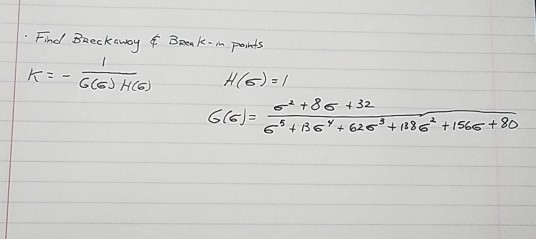 · Find Breckaway & Break-in points
K = - 1 / G(σ) H(σ)    H(σ) = 1
G(σ) = σ² + 8σ + 32 / σ⁵ + 13σ⁴ + 62σ³ + 138σ² + 156σ + 80